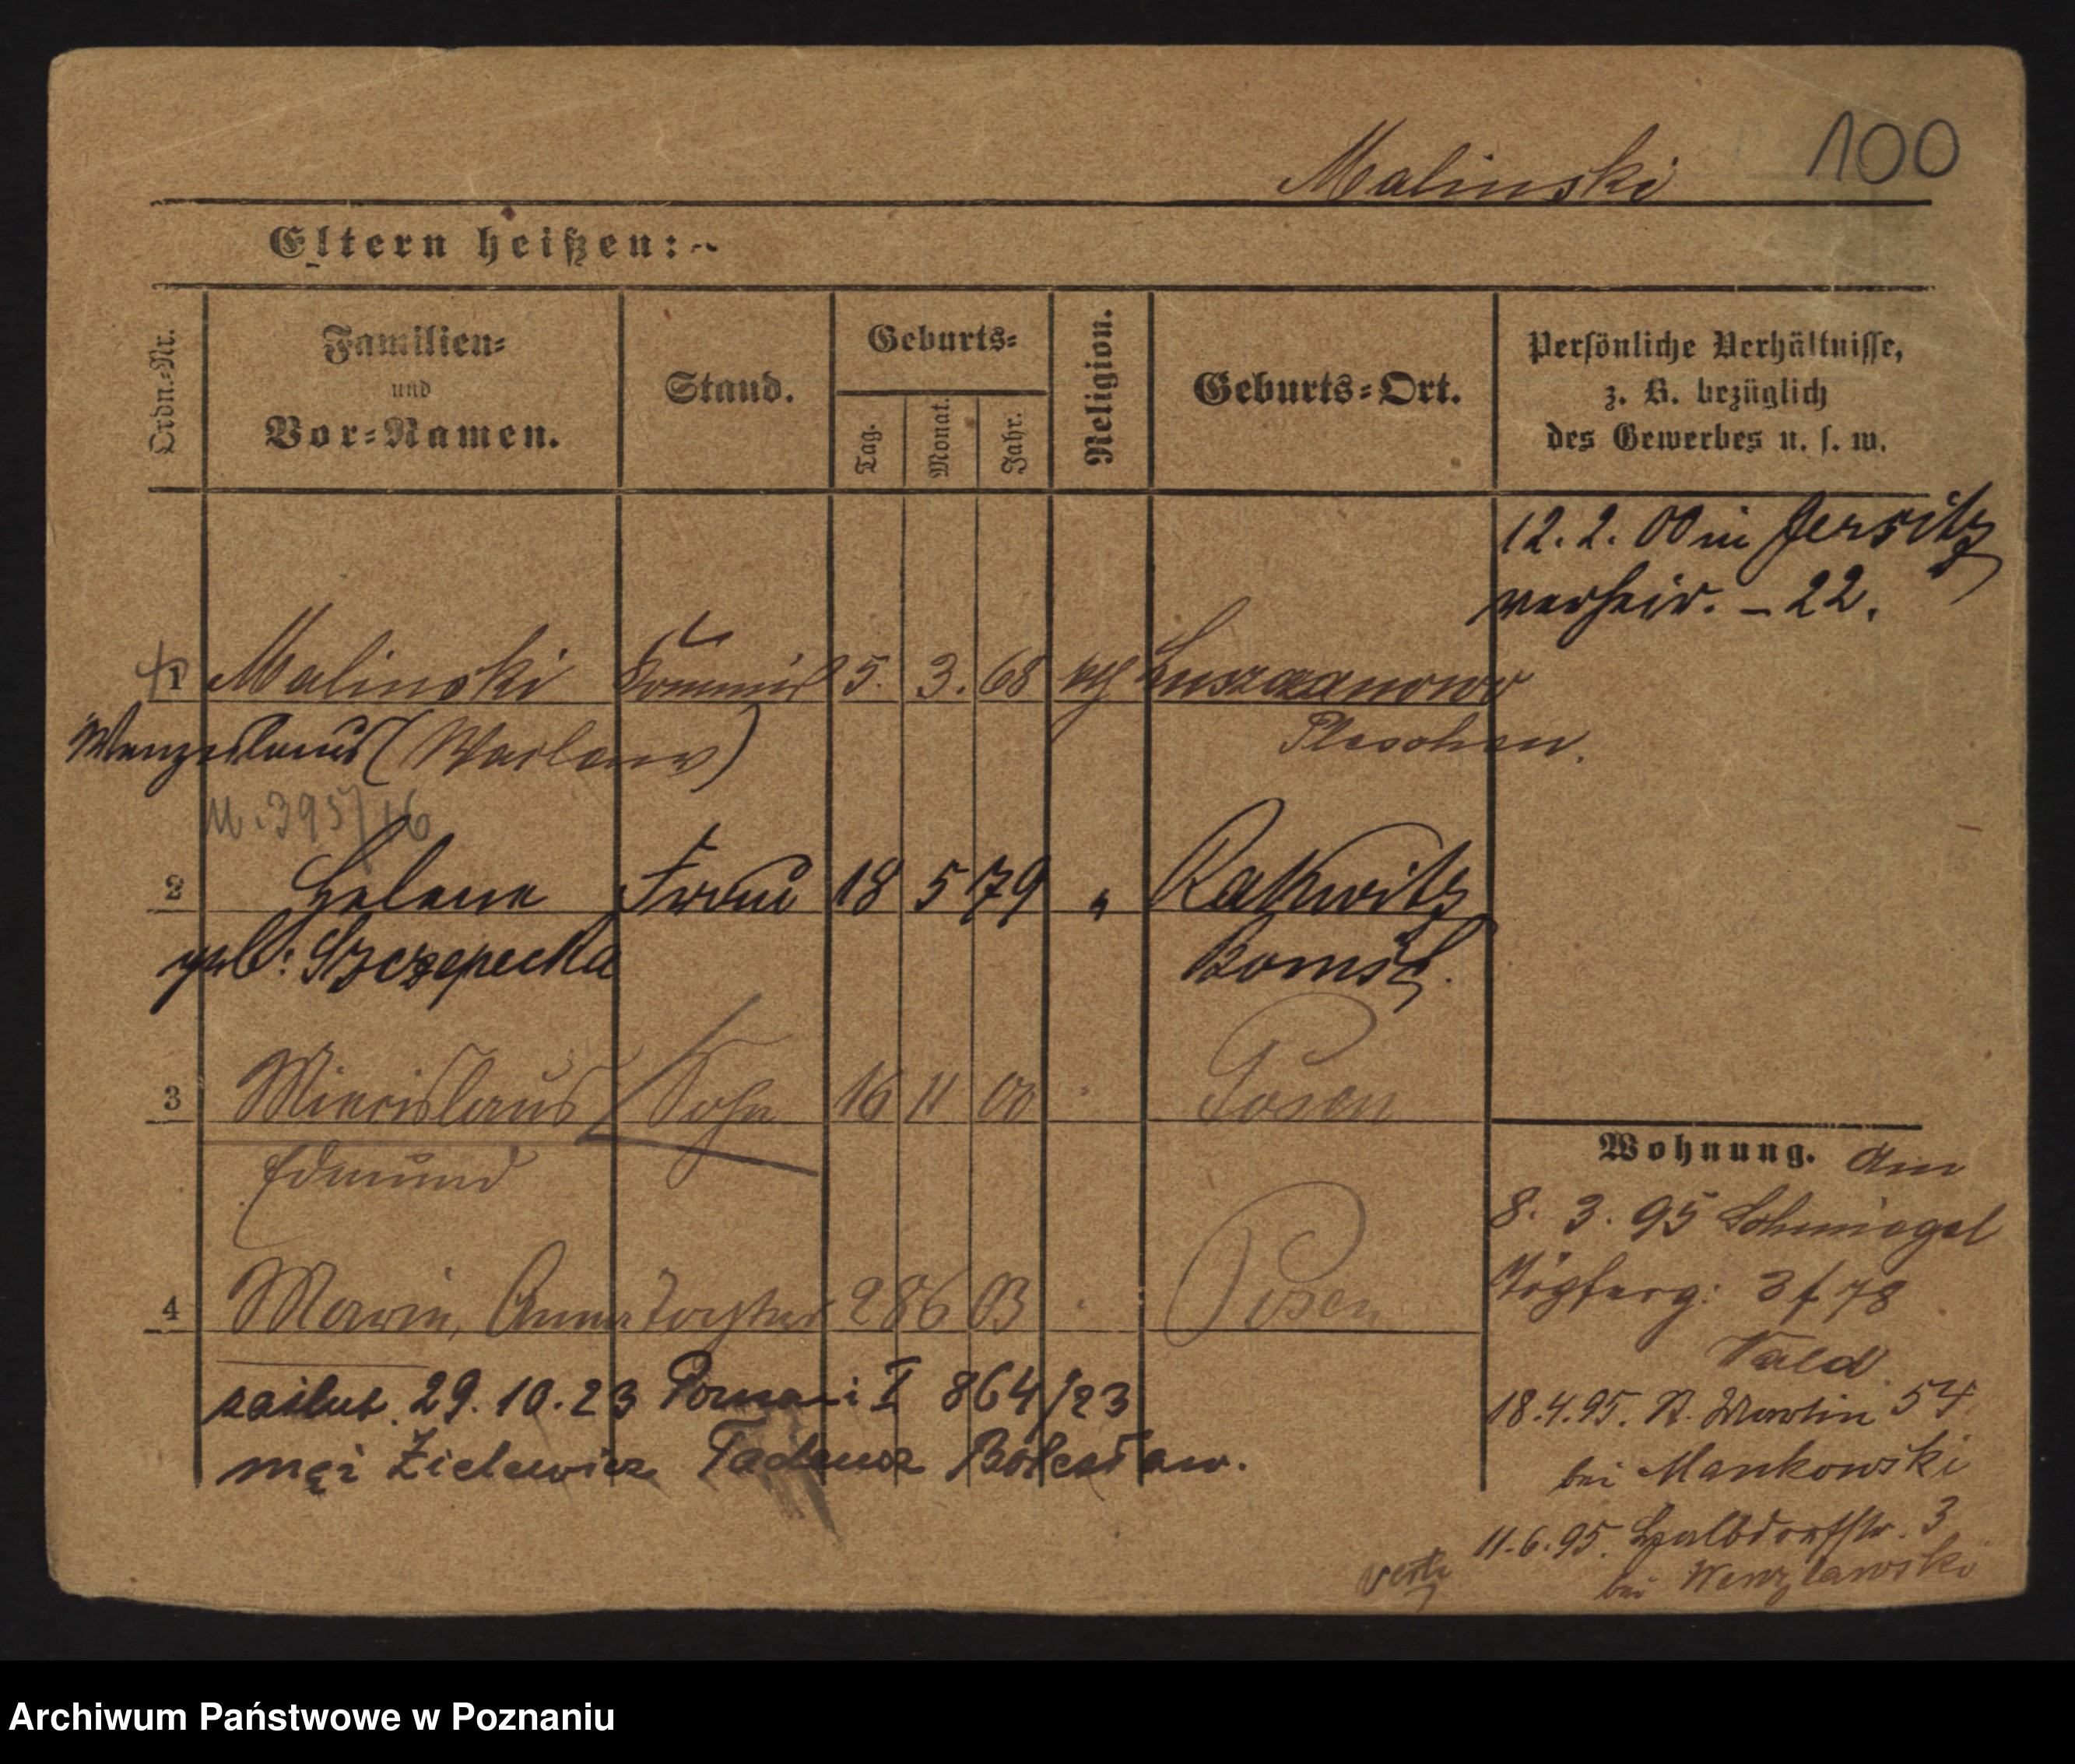 100
Malinski
Eltern heißen:
Ordn.-Nr.
Familien-
und
Vor-Namen.
Stand.
Geburts-
Tag.
Monat.
Jahr.
Religion.
Geburts-Ort.
Persönliche Verhältnisse,
z. B. bezüglich
des Gewerbes u. s. w.
12.2.00 in Jersitz
verheir. - 22.
1 Malinski Commis 5. 3. 68 kth
Wenzeslaus (Waclaw) Pleschen.
M. 395/16
2 Helene Frau 18 5 79 " Rakwitz
geb: Szczepecka Bomst.
3 Miecislaus Sohn 16 11 00 " Posen
Edmund
4 Marie, Anna Tochter 28 6 03 " Posen
zaślub. 29.10.23 Poznań I 864/23
mąż Zielewicz Tadeusz Bolesław.
Wohnung. Am
8. 3. 95 Schmiegel
3 f 78
18.4.95. St. Martin 54
bei Mankowski
11.6.95. Halbdorfstr. 3
bei Wenzlawski
Archiwum Państwowe w Poznaniu